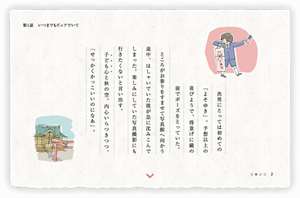 第1話 いつまでもピュアでいて
次男にとっては初めての
「よそゆき」。予想以上の
喜びようで、得意げに鏡の
前でポーズをとっていた。
ところがお参りをすませて写真館へ向かう
途中、はしゃいでいた彼が急に沈みこんで
しまった。楽しみにしていた写真撮影にも
行きたくないと言い出す。
子ども心と秋の空。内心いらつきつつ、
「せっかくかっこいいのになあ」。
2